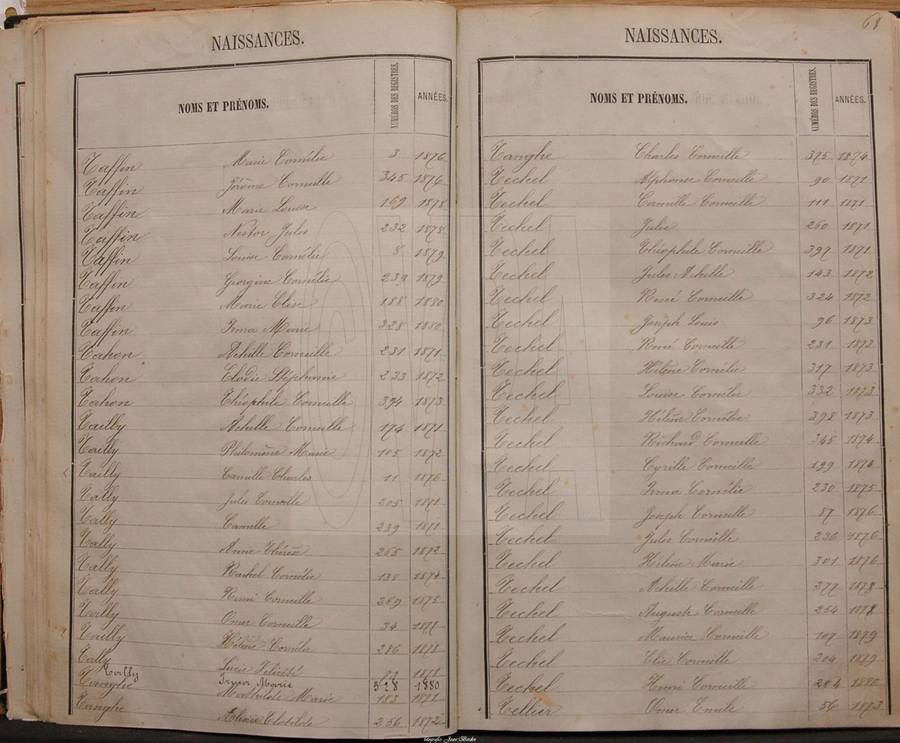 NAISSANCES.
NOMS ET PRÉNOMS. NUMÉROS DES REGISTRES. ANNÉES.
Taffin Marie Cornélie 3 1876
Taffin Jérôme Corneille 345 1876
Taffin Marie Louise 169 1878
Taffin Nestor Jules 232 1878
Taffin Louise Cornélie 8 1879
Taffin Georgine Cornélie 239 1879
Taffin Marie Elise 188 1880
Taffin Irma Marie 328 1880
Tahon Achille Corneille 231 1871
Tahon Elodie Stéphanie 233 1872
Tahon Théophile Corneille 394 1873
Tailly Achille Corneille 174 1871
Tailly Philomène Marie 105 1872
Tailly Camille Charles 11 1876
Tally Jules Corneille 205 1871
Tally Camille 239 1871
Tally Anne Thérèse 265 1872
Tally Rachel Cornélie 138 1874
Tally Remi Corneille 269 1875
Tally Omer Corneille 34 1877
Tailly Hélène Cornélie 286 1878
Tally Lucie Félicité 1878
Tailly Irma Marie 328 1880
Tanghe Mathilde Marie 183 1871
Tanghe Elisie Clotilde 266 1872
68
NAISSANCES.
NOMS ET PRÉNOMS. NUMÉROS DES REGISTRES. ANNÉES.
Tanghe Charles Corneille 375 1874
Techel Alphonse Corneille 90 1871
Techel Camille Corneille 111 1871
Techel Julie 260 1871
Techel Théophile Corneille 397 1871
Techel Jules Achille 143 1872
Techel René Corneille 324 1872
Techel Joseph Louis 96 1873
Techel René Corneille 231 1873
Techel Hélène Cornélie 317 1873
Techel Louise Cornélie 332 1873
Techel Hélène Cornélie 398 1873
Techel Richard Corneille 345 1874
Techel Cyrille Corneille 199 1874
Techel Irma Cornélie 230 1875
Techel Joseph Corneille 87 1876
Techel Jules Corneille 236 1876
Techel Hélène Marie 301 1876
Techel Achille Corneille 277 1878
Techel Auguste Corneille 254 1878
Techel Maurice Corneille 107 1879
Techel Elie Corneille 204 1879
Techel Henri Corneille 284 1880
Tellier Omer Emile 56 1873